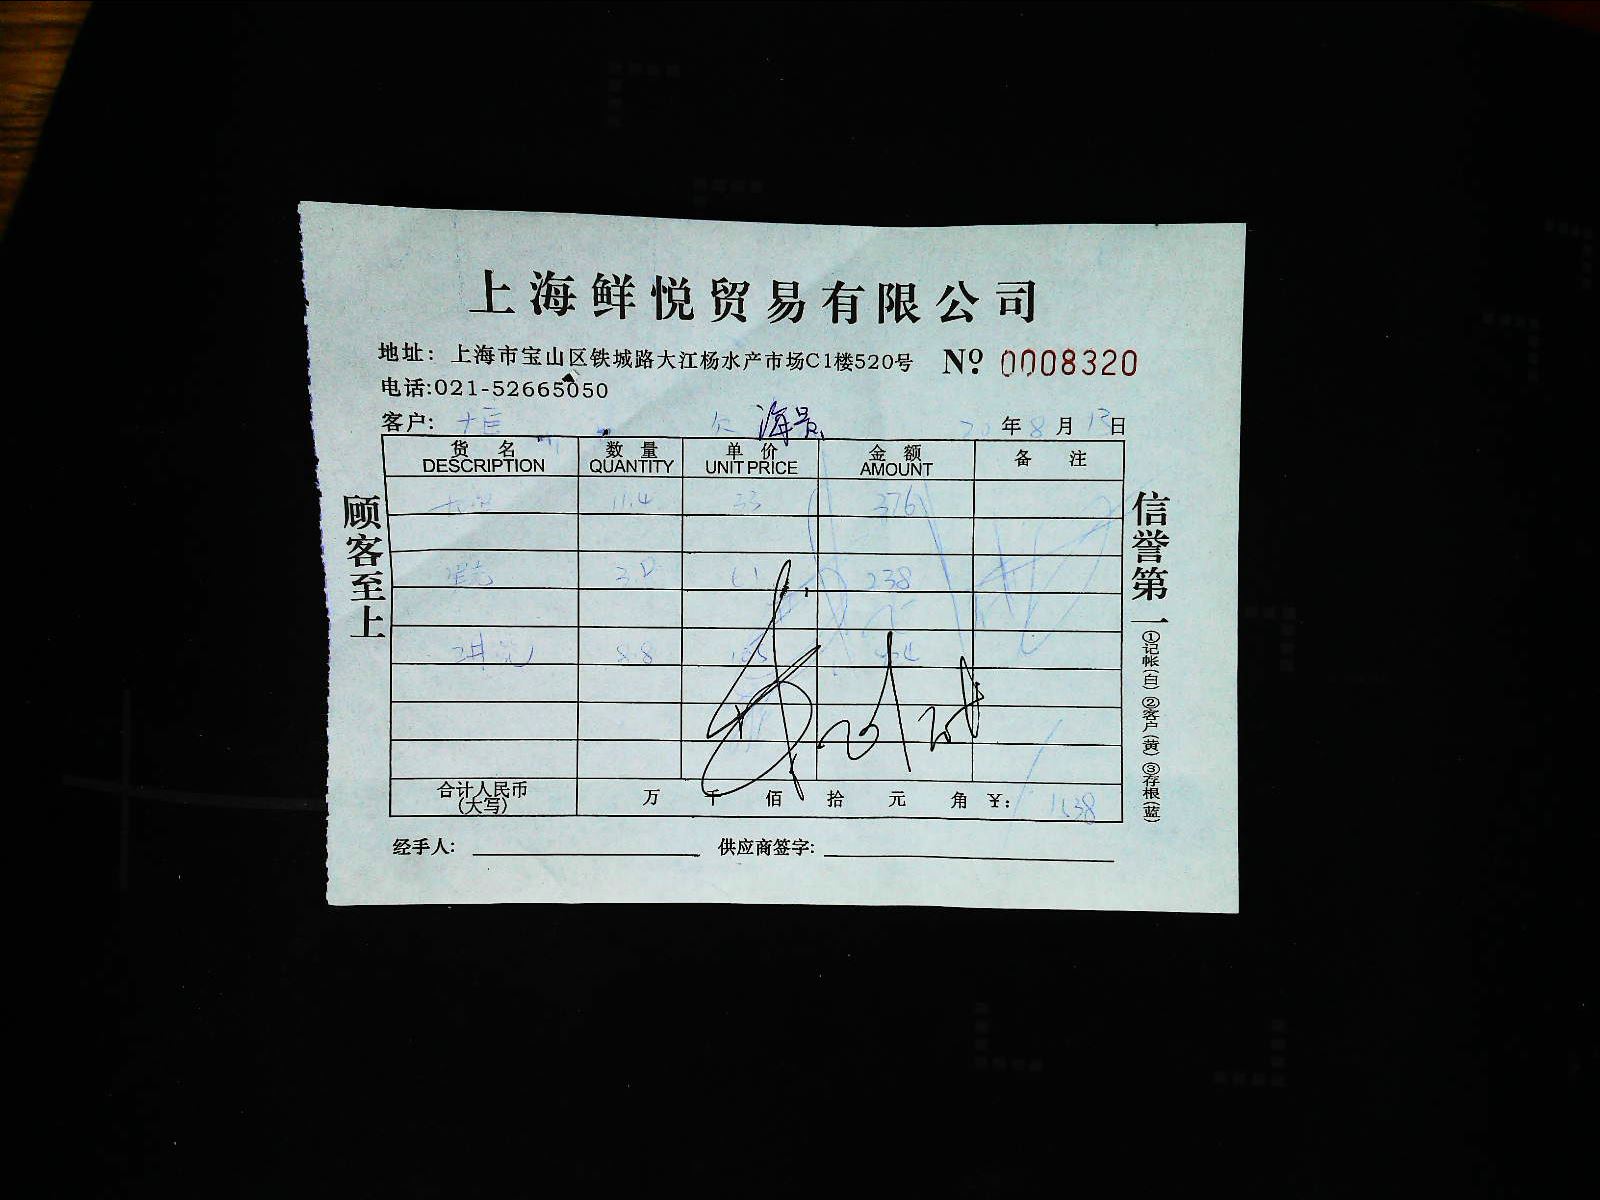 上海鲜悦贸易有限公司
地址：上海市宝山区铁城路大江杨水产市场C1楼520号 Nº 0008320
电话:021-52665050
客户: 海景 20年8月13日
货名 数量 单价 金额 备注
DESCRIPTION QUANTITY UNIT PRICE AMOUNT
11.4 33 376
238
8.8
合计人民币(大写) 万 千 佰 拾 元 角 ￥:
经手人: 供应商签字:
顾客至上
信誉第一
①记帐(白) ②客户(黄) ③存根(蓝)